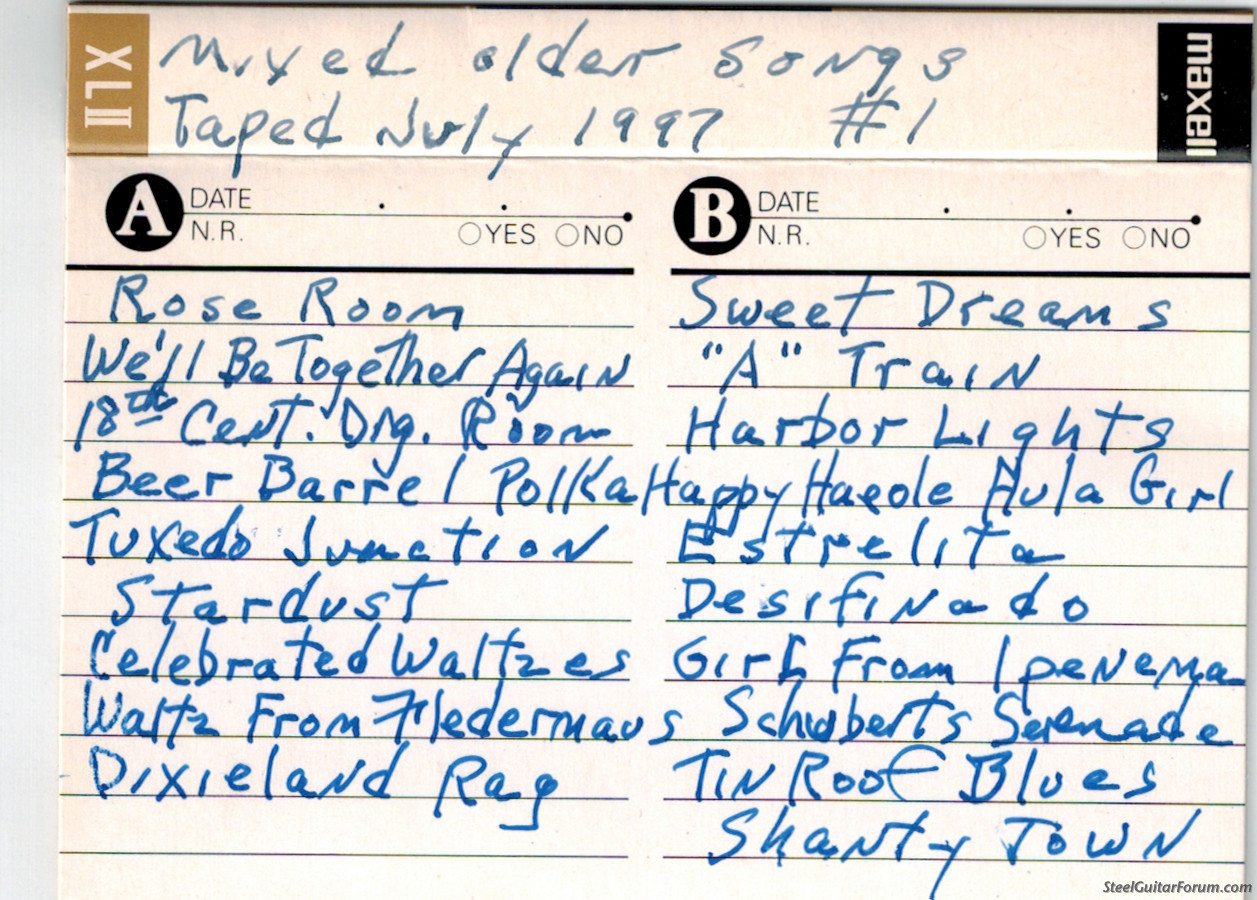 XLII
Mixed older songs
Taped July 1997 #1
maxell
A DATE
N.R. YES NO
B DATE
N.R. YES NO
Rose Room
We'll Be Together Again
18th Cent. Drg. Room
Beer Barrel Polka
Tuxedo Junction
Stardust
Celebrated Waltzes
Waltz From Fledermaus
Dixieland Rag
Sweet Dreams
"A" Train
Harbor Lights
Happy Haeole Hula Girl
Estrelita
Desifinado
Girl From Ipenema
Schuberts Serenade
Tin Roof Blues
Shanty Town
SteelGuitarForum.com